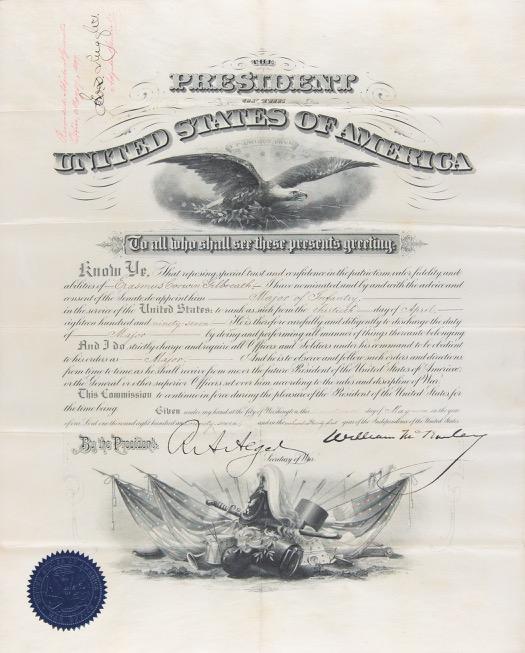 THE
PRESIDENT
OF THE
UNITED STATES OF AMERICA
To all who shall see these presents greeting:
Know Ye, That reposing special trust and confidence in the patriotism valor, fidelity and
abilities of Erasmus Corwin Gilbreath, I have nominated and by and with the advice and
consent of the Senate do appoint him Major of Infantry,
in the service of the United States: to rank as such from the thirtieth day of April
eighteen hundred and ninety seven He is therefore carefully and diligently to discharge the duty
of Major by doing and performing all manner of things thereunto belonging
And I do strictly charge and require all Officers and Soldiers under his command to be obedient
to his orders as Major. And he is to observe and follow such orders and directions
from time to time as he shall receive from me or the future President of the United States of America:
or the General or other superior Officers set over him according to the rules and discipline of War.
This Commission to continue in force during the pleasure of the President of the United States for
the time being.
Given under my hand at the City of Washington this day of May in the year
of our Lord one thousand eight hundred and ninety seven and in the one hundred and twenty first year of the Independence of the United States
By the President:
R. A. Alger
Secretary of War.
William McKinley